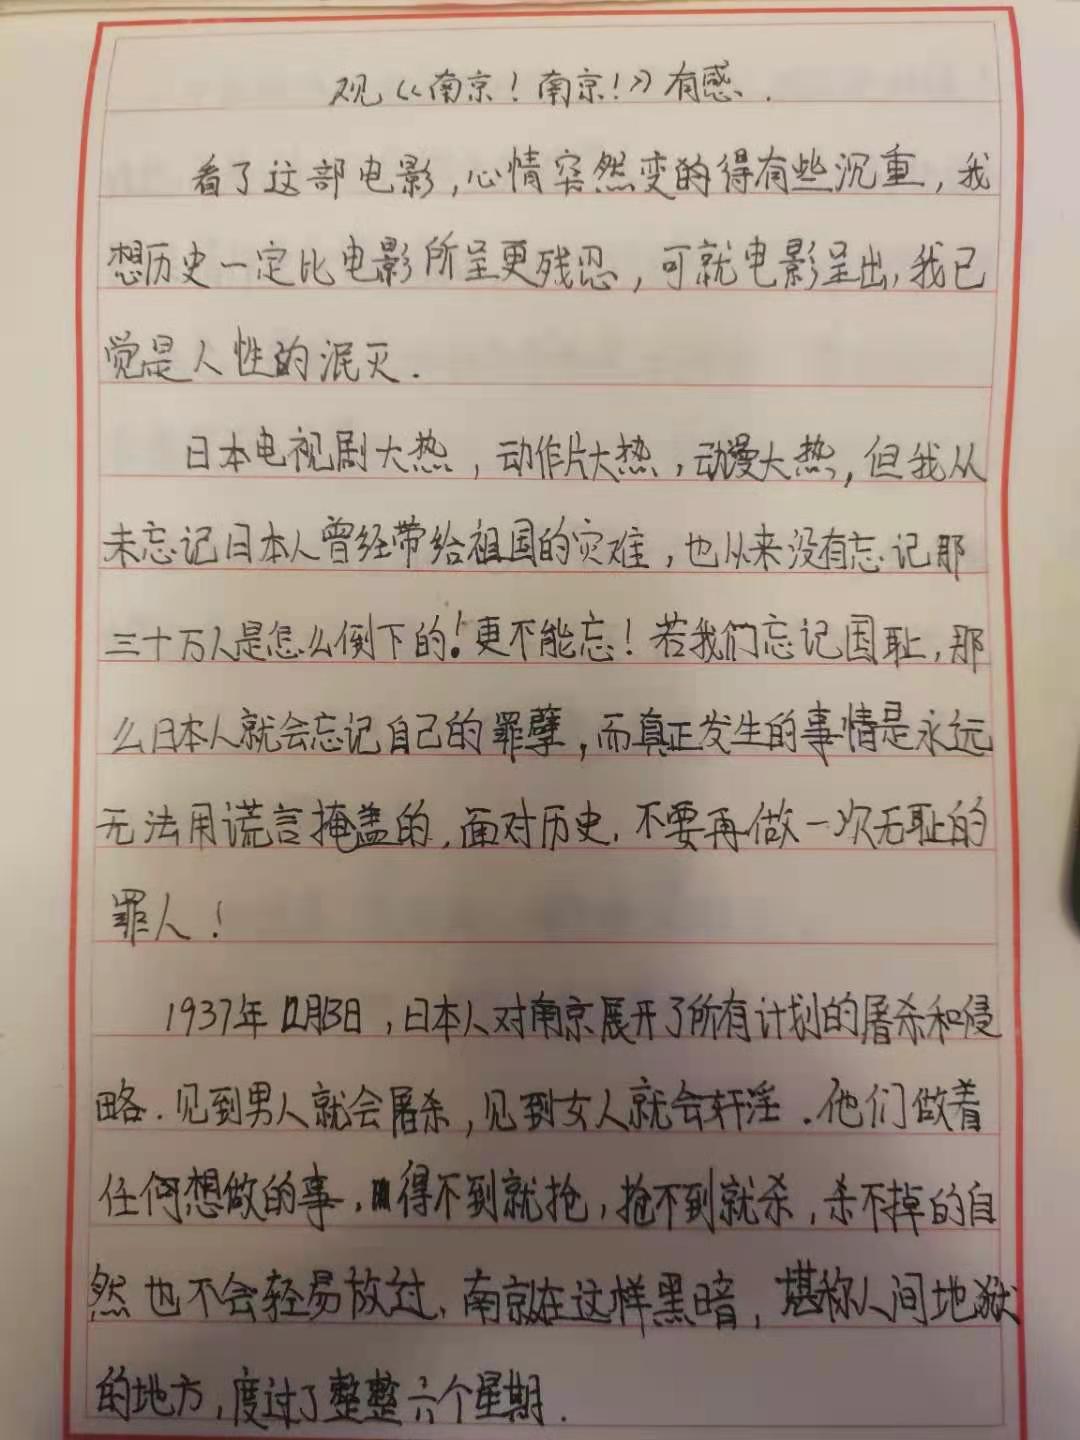 观《南京！南京！》有感.
看了这部电影，心情突然变的得有些沉重，我
想历史一定比电影所呈更残忍，可就电影呈出，我已
觉是人性的泯灭.
日本电视剧大热，动作片大热，动漫大热，但我从
未忘记日本人曾经带给祖国的灾难，也从来没有忘记那
三十万人是怎么倒下的！更不能忘！若我们忘记国耻，那
么日本人就会忘记自己的罪孽，而真正发生的事情是永远
无法用谎言掩盖的，面对历史，不要再做一次无耻的
罪人！
1937年12月13日，日本人对南京展开了所有计划的屠杀和侵
略.见到男人就会屠杀，见到女人就会奸淫.他们做着
任何想做的事，得不到就抢，抢不到就杀，杀不掉的自
然也不会轻易放过，南京在这样黑暗，堪称人间地狱
的地方，度过了整整六个星期.